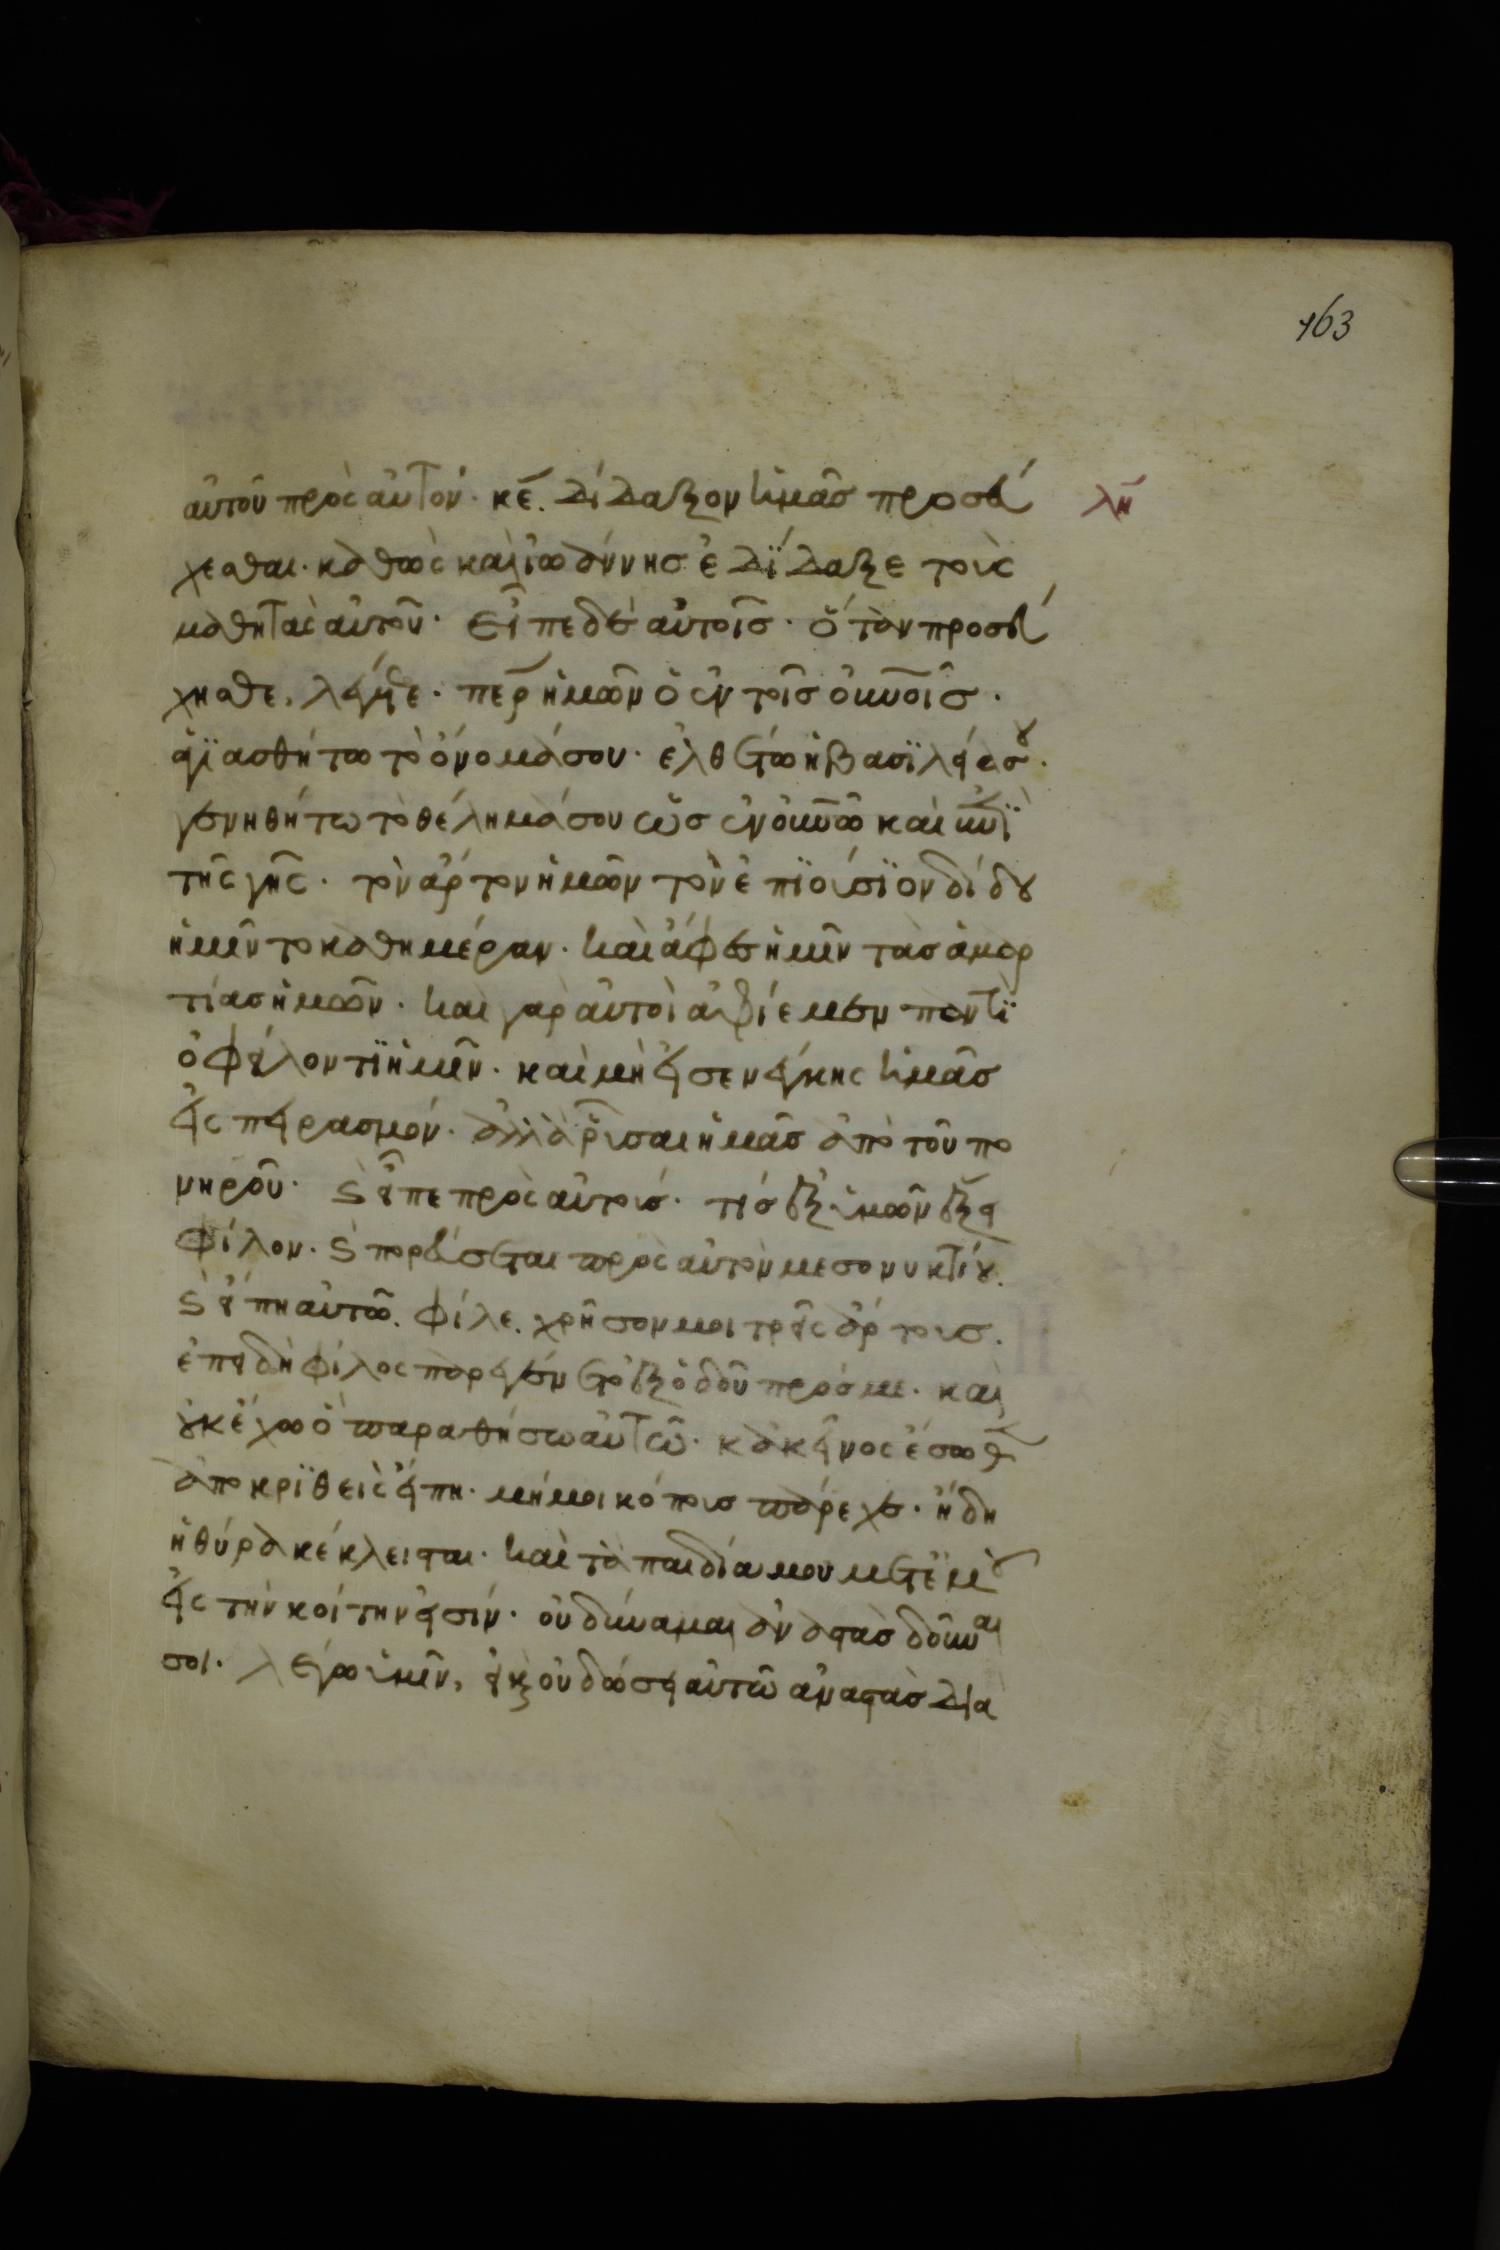 163
αὐτοῦ πρὸς αὐτόν· κε̄. δίδαξον ἡμᾶς προσεύ λη
χεσθαι· καθὼς καὶ ἰωάννης ἐδΐδαξε τοὺς
μαθητὰς αὐτοῦ· εἶπε δὲ αὐτοῖς· ὅταν προσεύ
χησθε, λέγετε· περ ἡμῶν ὁ ἐν τοῖς οὐνοῖς·
ἁγϊασθήτω τὸ ὄνομά σου· ἐλθέτω ἡ βασϊλεία σου·
γενηθήτω τὸ θέλημά σου ὡς ἐν οὐνῶ καὶ ἐπῒ
τῆς γῆς· τὸν ἄρτον ἡμῶν τὸν ἐπϊούσϊον δίδου
ἡμῖν το καθημέραν· καὶ ἄφες ἡμῖν τὰς ἁμαρ
τίας ἡμῶν· καὶ γὰρ αὐτοὶ ἀφίεμεν παντῒ
ὀφείλοντϊ ἡμῖν· καὶ μὴ εἰσενείκης ἡμᾶς
εἰς πειρασμόν· ἀλλὰ ῥῦσαι ἡμᾶς ἀπὸ τοῦ πο
νηροῦ· ϛ εἶπε πρὸς αὐτούς· τίς ἐξ ὑμῶν ἕξει
φίλον· ϛ πορεύσεται πρὸς αὐτὸν μεσονυκτίου.
ϛ εἴπη αὐτῶ. φίλε. χρῆσον μοι τρεῖς ἄρτους.
ἐπειδὴ φίλος παρεγένετο ἐξ ὁδοῦ πρός με· καὶ
οὐκ ἔχω ὃ παραθήσω αὐτῶ· κἀκεῖνος ἔσωθεν
ἀποκρϊθεὶς εἴπη· μή μοι κόπους πάρεχε· ἤδη
ἡ θύρα κέκλεισται· καὶ τὰ παιδία μου μετ' ἐμοῦ
εἰς τὴν κοίτην εἰσίν· οὐ δύναμαι ἀναστὰς δοῦναι
σοι· λέγω ὑμῖν, εἰ καὶ οὐ δώσει αὐτῶ ἀναστὰς δϊα